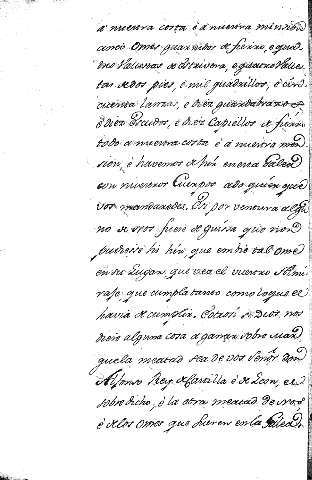 a nuestra costa è à nuestra mension
cinco omes guarnidos de fierro, e quatro
Vallestas de Estrivera, e quatro Valles
tas de dos pies, è mil quadrillos, è cin
cuenta lanzas, e diez guardabrazos
è diez Escudos, è diez Capiellos de fierro
todo a nuestra costa è à nuestra men
sion, è havemos de hir en esta Galea
con nuestros Cuerpos ado quier que
vos mandaredes. Et por ventura algu
no de nos fuere de guissa que non
pudiesse hi hir, que embie tal ome
en su Lugar, que vea el vuestro Almi
rage que cumpla tanto como lo que el
havia de cumplir. Et otrosi si Dios nos
diere alguna cosa à ganar sobre Mar
que la meatad sea de vos Señor Don
Alfonso Rey de Castilla è de Leon, el
sobredicho, è la otra meatad de Nos
è de los omes que fueren en la Galea